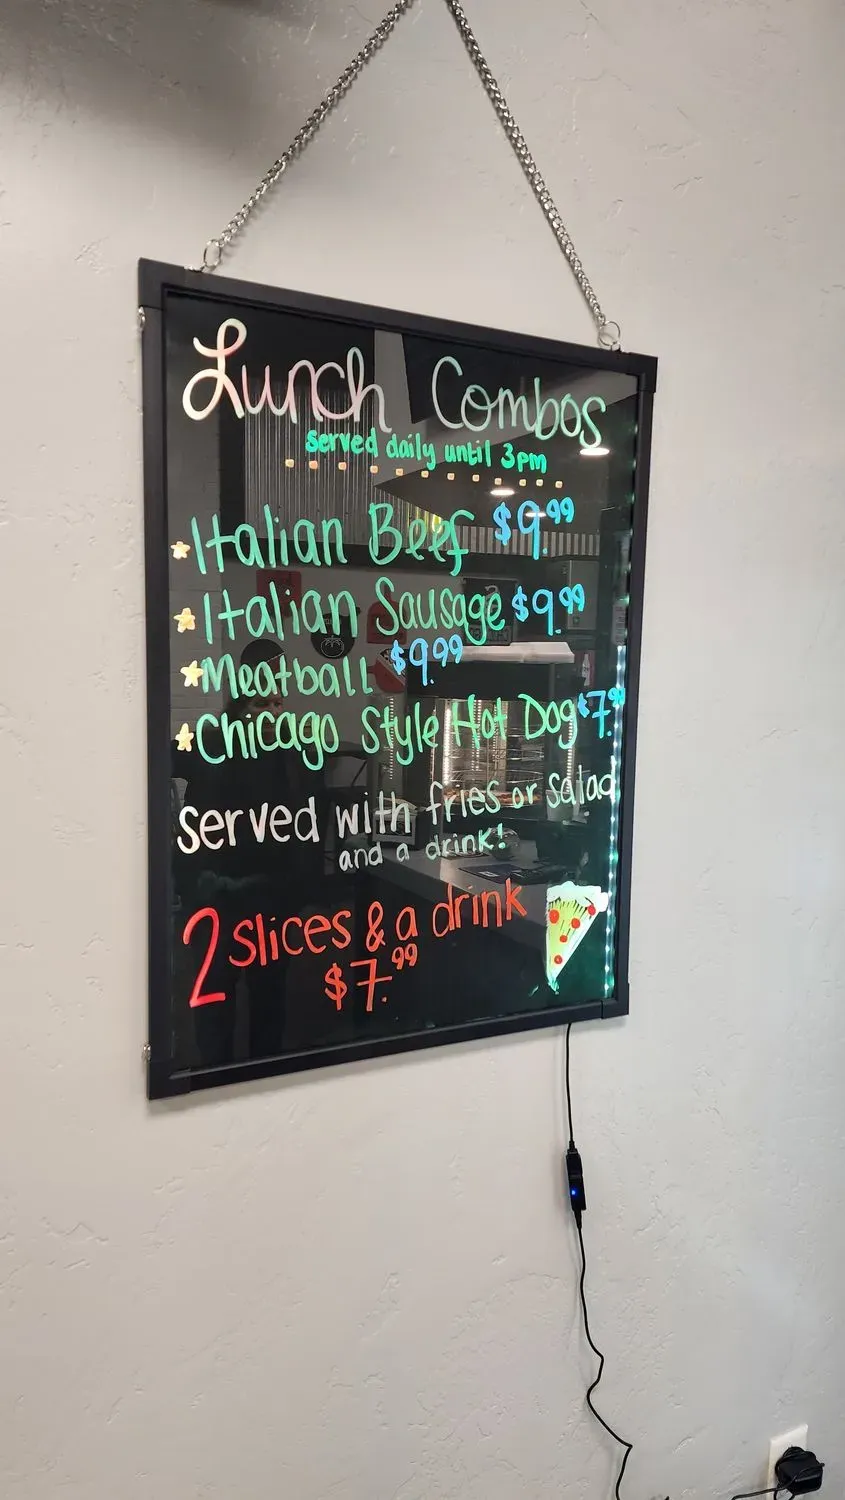 Lunch Combos
served daily until 3pm
Italian Beef $9.99
Italian Sausage $9.99
Meatball $9.99
Chicago Style Hot Dog $7.99
served with fries or salad
and a drink!
2 slices & a drink
$7.99